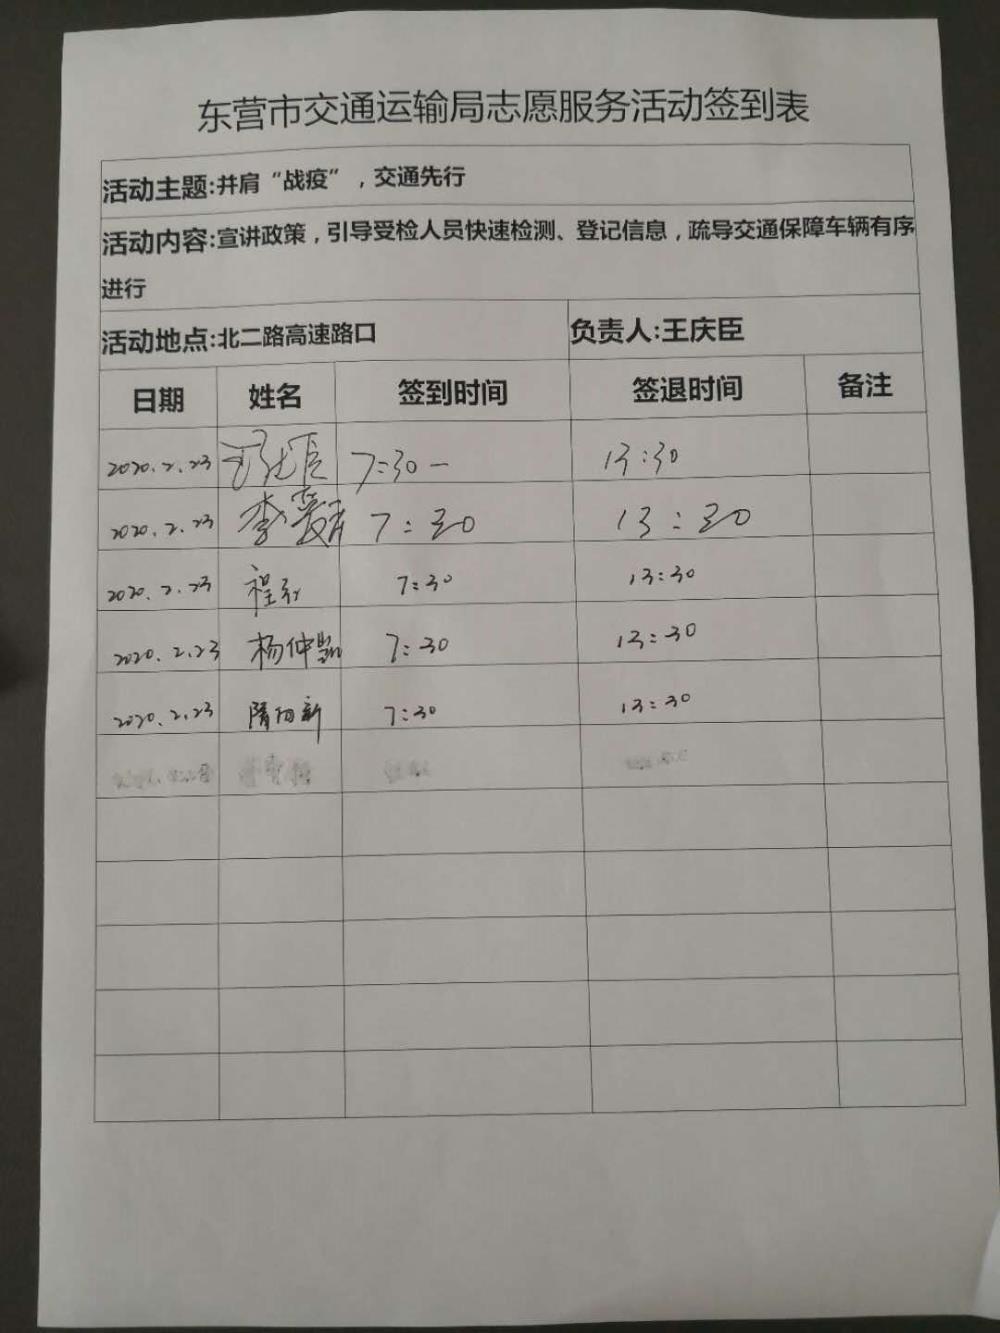 东营市交通运输局志愿服务活动签到表
活动主题:并肩“战疫”，交通先行
活动内容:宣讲政策，引导受检人员快速检测、登记信息，疏导交通保障车辆有序
进行
活动地点:北二路高速路口 负责人:王庆臣
日期 姓名 签到时间 签退时间 备注
2020.2.23 7:30 — 13:30
2020.2.23 李 7:30 13:30
2020.2.23 程 7:30 13:30
2020.2.23 杨仲凯 7:30 13:30
2020.2.23 隋向新 7:30 13:30